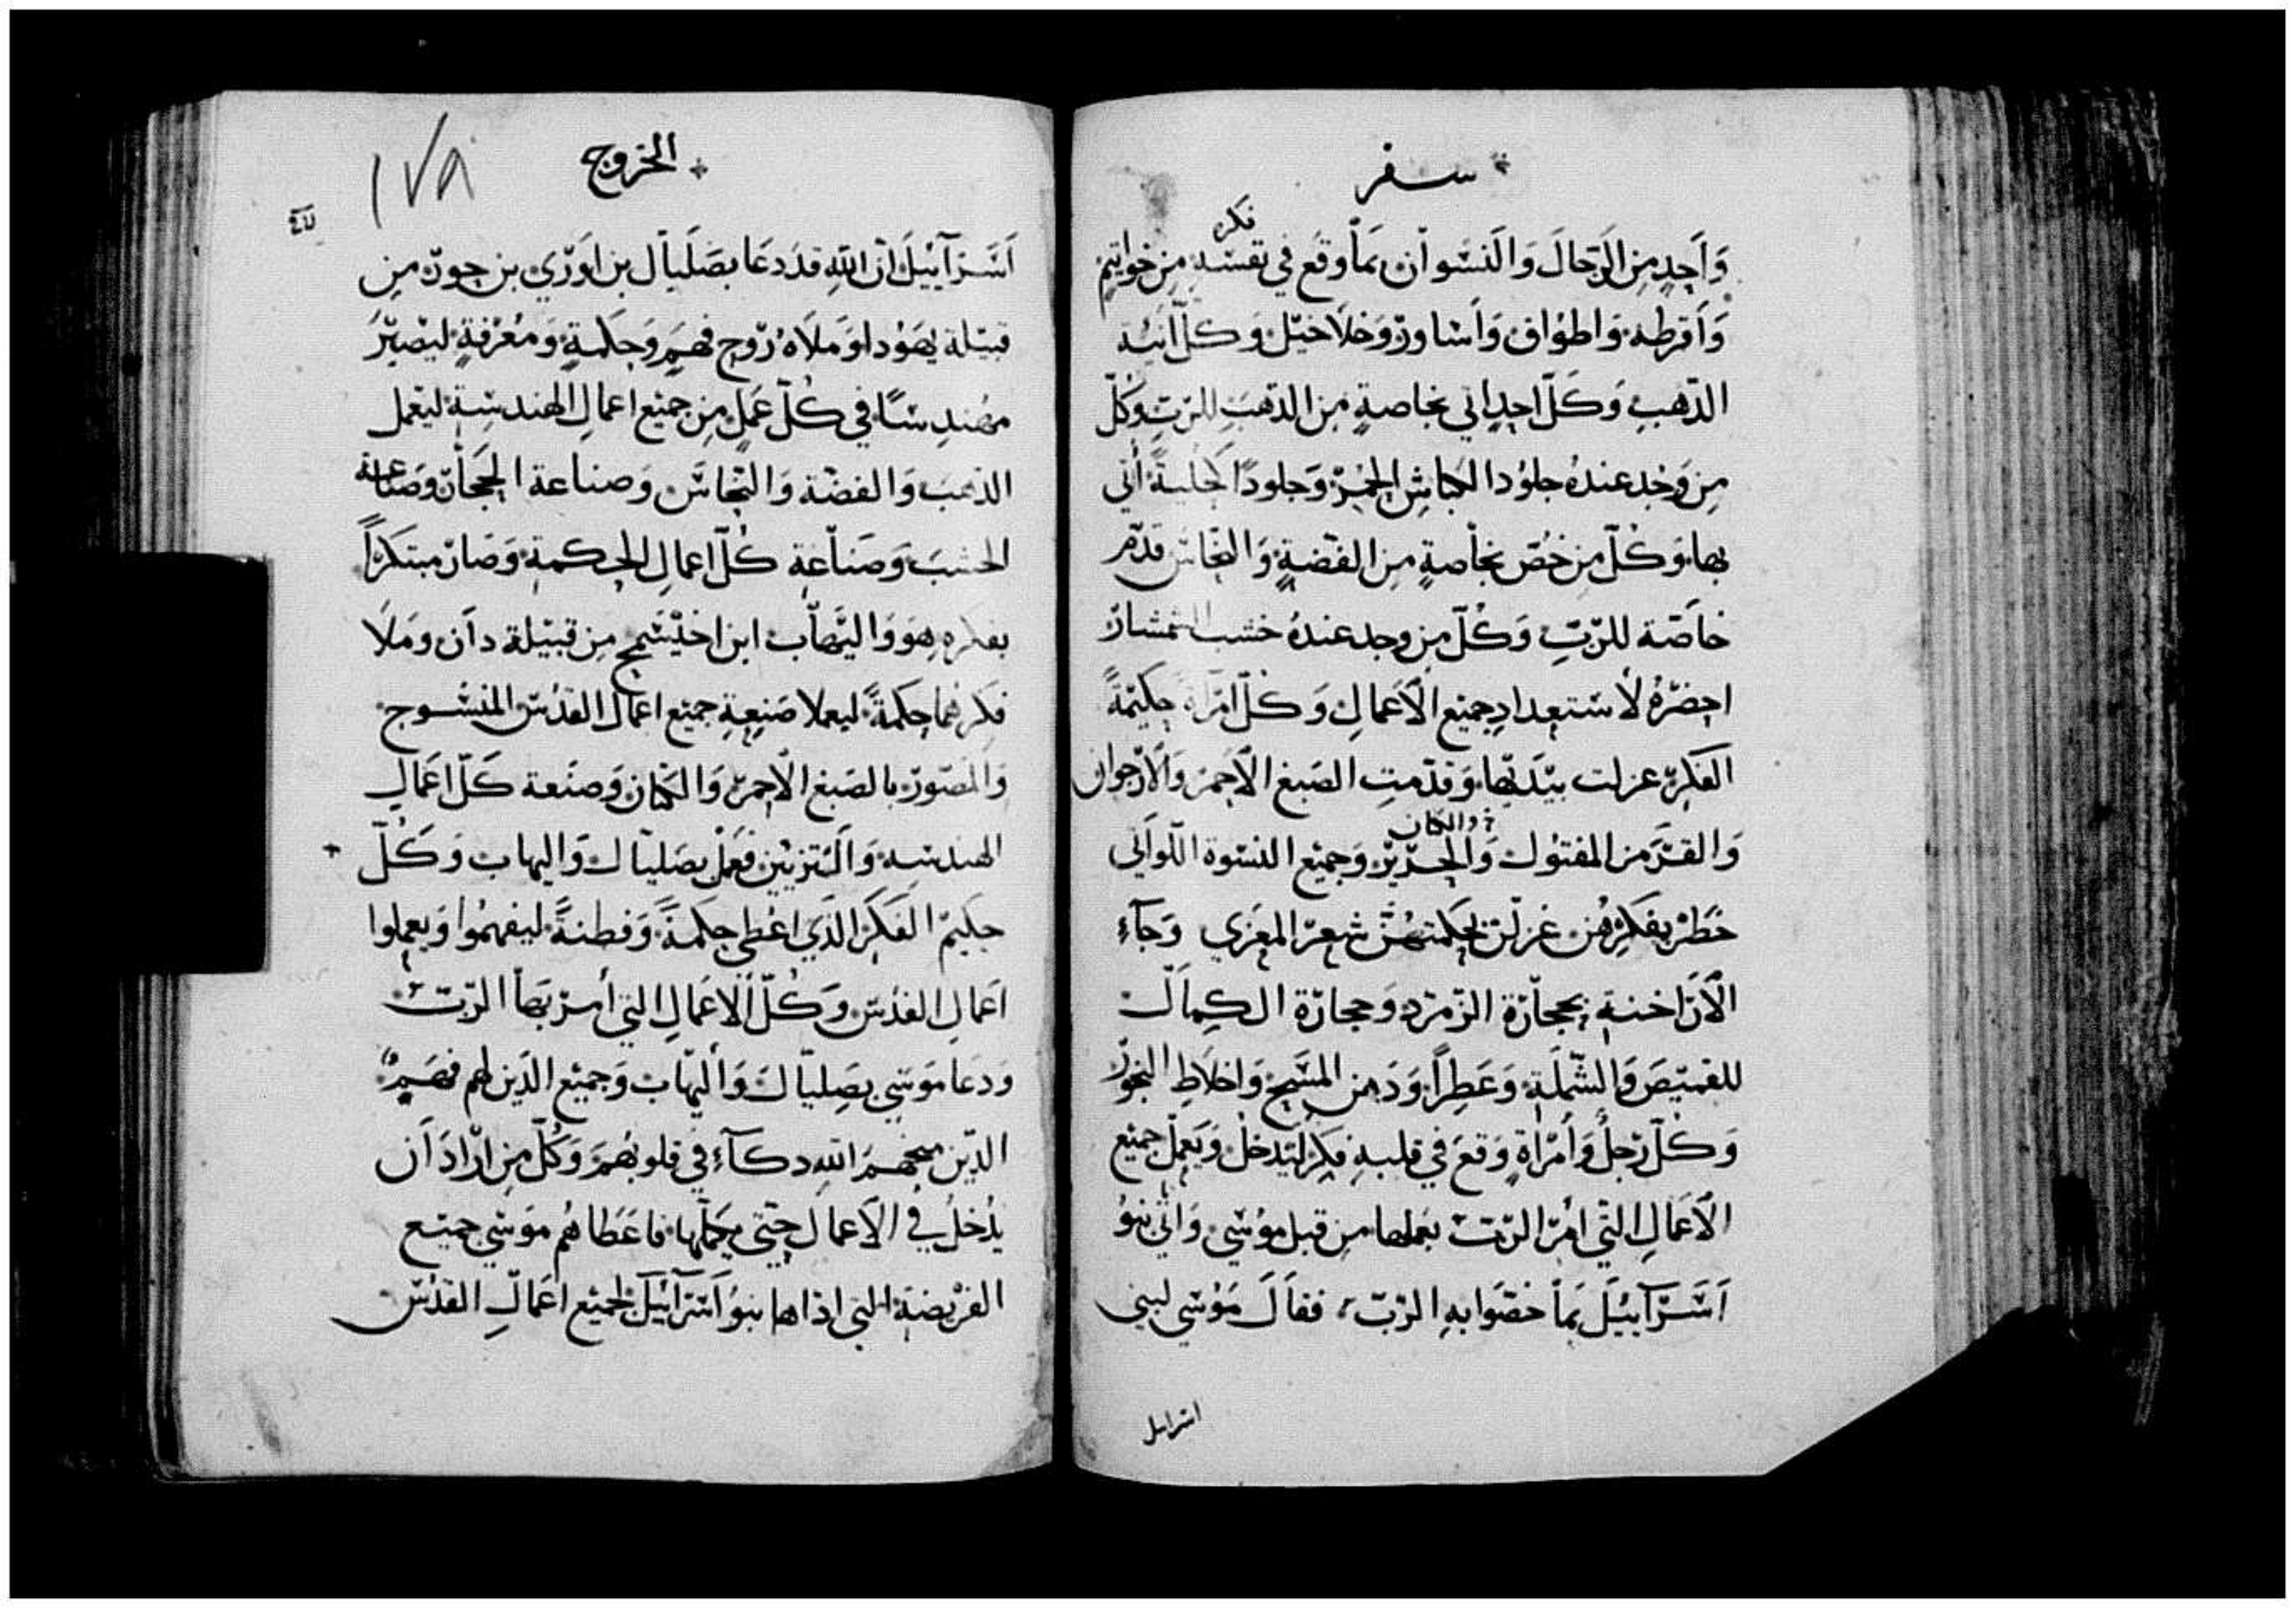 سفر
فكره
وَاَحِدٍ مِنِ الَرّجالَ وَالَنسْوان بمَاَ وقَع في نفسْهِ مِن خواتِيمٍ
وَاَقرطه وَاطوُاف وَاَسَاورّ وَخلَاخيْل وَكلّ انيُة
الذّهبِ وَكَلّ احدٍ اتي بخاصةٍ مِن الذهَبِ للربِ وَكُلّ
مِن وَجَد عندهُ جلوُد الكباش الحُمْرّ وَجلودًا كُحليةً اُتي
بها وَكُلّ مِن خُصّ بخاصةٍ مِن الفضةٍ وَالنحاسّ قدّم
خاصّة للرّبِ وَكُلّ مِن وجد عندهُ خشب الشمشارّ
احضَرّهُ لُأستعِدادِ جميْع الَاعَمالِ وَكلّ امرّاة حكيْمةً
الفكرّ غزلت بيْدَيْها وَقدّمتِ الصَبغ الَاحمرّ وَالَارّجوان
والكتان
وَالقرَمز المفتوُل وَالحرّيْرّ وَجميْع النسْوة اللوَاتي
خطرّ بفكرِهُن غزلنّ بحكمتهُنّ شعرّ المعزي وَجاَءِ
الَارَاخنة بحجارّة الزّمرّد وَحجارّة الكمال
للقميْصَ وَالشّملَةِ وَعَطِراً وَدَهن المسَح وَاخلَاطِ البخوّرّ
وَكلّ رّجلُ وَاُمَرّاةٍ وَقعَ في قلبهِ فِكرّ ليدخلُ وَيَعملّ جميْع
الَاعَمالِ التّي امُرّ الرّبّ بعملها مِن قبل موُسْي وَاتي بنوُ
اَسَرّآييُلَ بمَاَ خصّوا بهِ الرّبّ، فقاَلَ مَوُسْي لبني
اسرايل
الخروج
١٧٨
اَسَرّآييْلَ انّ اللهِ قدَ دعَا بصَلَيالَ بن اوَرّي بن حورّ مِن
قبيْلة يهَوُدا وَمَلَاهُ رّوح فهمٍ وَحِكمةٍ وَمعُرّفةٍ ليْصيْرّ
مهُندِسًا في كُلّ عَملٍ مِن جميْع اعمالِ الهندسِة ليَعْمل
الذهب وَالفضة وَالنحاسَ وَصناعة الحجَارّ وَصَناعة
الخشبَ وَصَناَعةِ كُلّ اعمالِ الحِكمة وَصَارّ مبتكرّاً
بفكرهِ هِوَ وَاليْهاّب ابن اخيْسَمخ مِن قبيْلة دَان وَملَا
فكرّهُما حِكمةً ليعملا صَنِعةِ جميْع اعمال القدُسْ المنْسْوج
وَالمُصّورّ بالصَبغ الَاحمرّ وَالكتان وَصنَعة كَلّ اعَمالِ
الهندسْه وَالتزييْن فعَملّ بصَليْالَ وَاليهاب وَكُلّ
حكيمّ الفكرّ الذّي اعُطي حِكمةً وَفطنةً ليفهمُوا وَيعملوا
اَعمالِ القدُسّ وَكُلّ الَاعَمالِ التي اُمرّ بَها الرّبّ
وَدعَا مَوسْي بصَليْالَ وَاليْهاب وَجميْع الذّيْن لهم فهَمٍ
الذّين منحهمَ اللهِ دكآءِ في قلوبهُمَ وَكُلّ مِن ارّادَ اَن
يدُخلُ في الَاعَمال حِتي يعَملّها فاعَطاهُم مَوسْي جميْع
الفرّيضة التي اداها بنوُ اَسَرّآئيْلَ لجميْع اعَمالِ القدُسّ